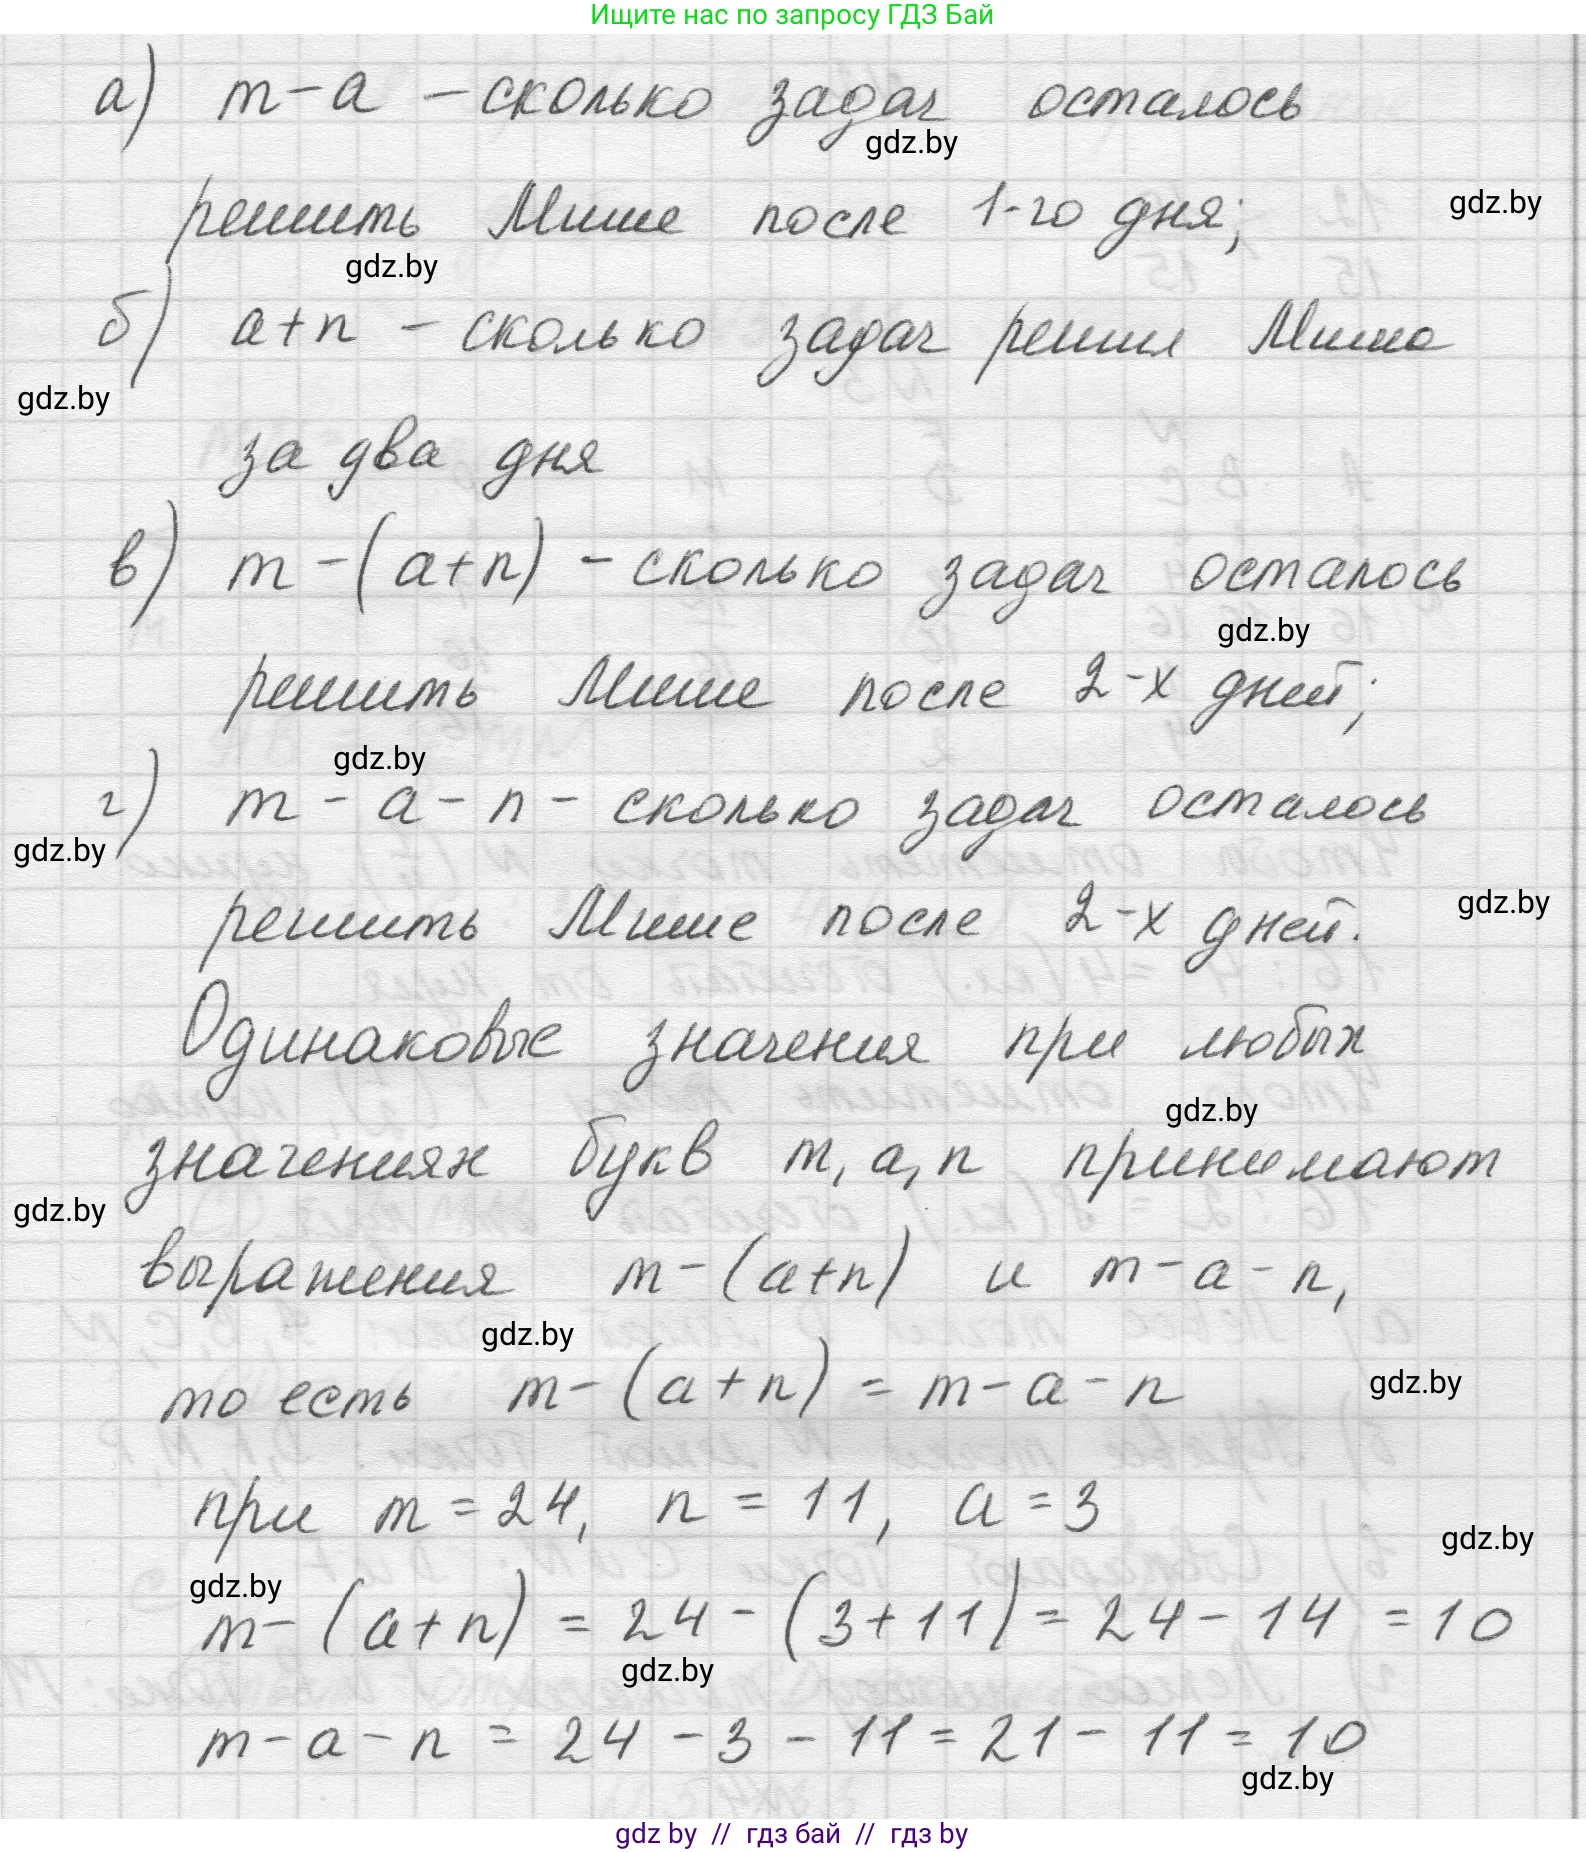 Ищите нас по запросу ГДЗ Бай
а) m - a - сколько задач осталось
gdz.by
решить Мише после 1-го дня;
gdz.by
gdz.by
б) a+n - сколько задач решил Миша
gdz.by
за два дня
в) m - (a+n) - сколько задач осталось
gdz.by
решить Мише после 2-х дней;
gdz.by
г) m - a - n - сколько задач осталось
gdz.by
решить Мише после 2-х дней.
gdz.by
Одинаковые значения при любых
gdz.by
значениях букв m, a, n принимают
gdz.by
выражения m - (a+n) и m - a - n,
gdz.by
то есть m - (a+n) = m - a - n
gdz.by
при m = 24, n = 11, a = 3
gdz.by
gdz.by
m - (a+n) = 24 - (3+11) = 24 - 14 = 10
gdz.by
m - a - n = 24 - 3 - 11 = 21 - 11 = 10
gdz.by
gdz by // гдз бай // гдз by